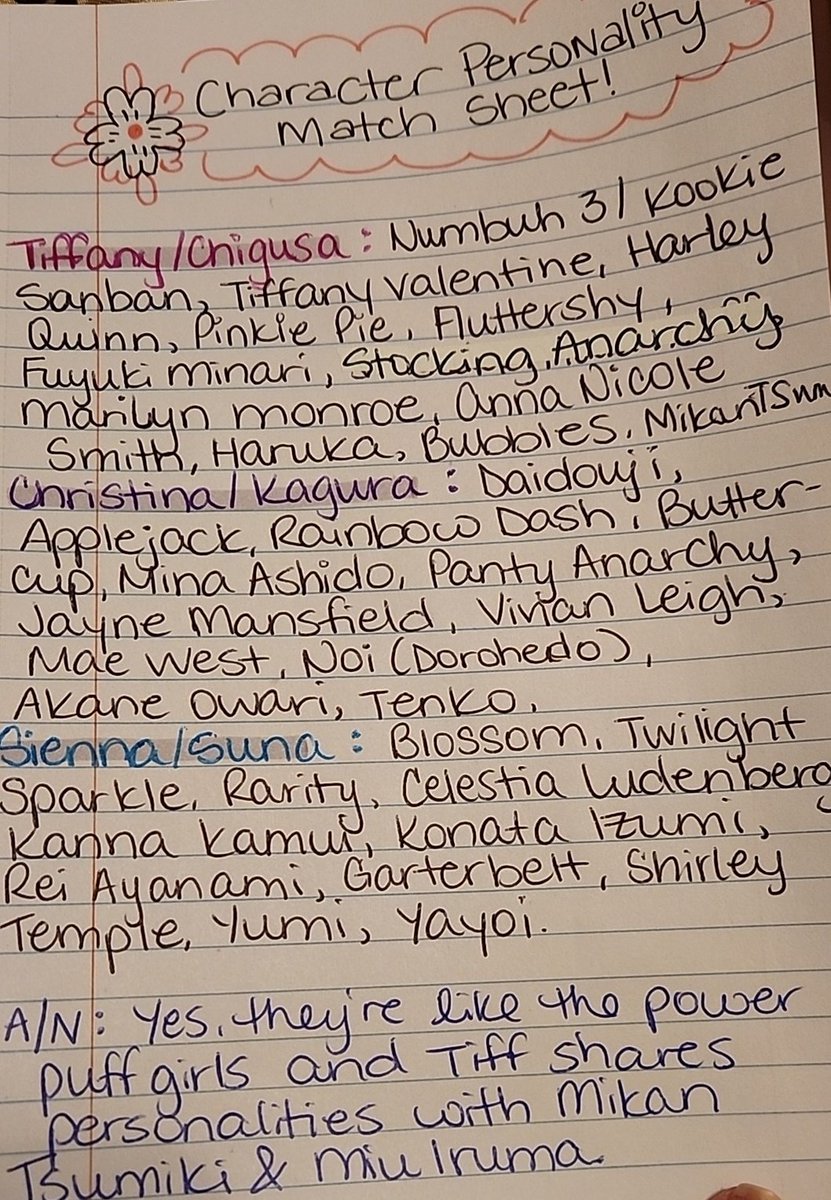 Character Personality
Match Sheet!
Tiffany/Chigusa: Numbuh 3/ Kookie
Sanban, Tiffany Valentine, Harley
Quinn, Pinkie Pie, Fluttershy,
Fuyuki Minari, Stocking Anarchy,
Marilyn Monroe, Anna Nicole
Smith, Haruka, Bubbles, Mikan Tsum
Christina/Kagura: Daidouji,
Applejack, Rainbow Dash, Butter-
cup, Mina Ashido, Panty Anarchy,
Jayne Mansfield, Vivian Leigh,
Mae West, Noi (Dorohedo),
Akane Owari, Tenko,
Sienna/Suna: Blossom, Twilight
Sparkle, Rarity, Celestia Ludenberg
Kanna Kamui, Konata Izumi,
Rei Ayanami, Garterbelt, Shirley
Temple, Yumi, Yayoi.
A/N: Yes, they're like the power
puff girls and Tiff shares
personalities with Mikan
Tsumiki & Miu Iruma.